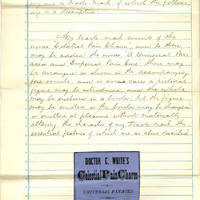 are a trade Mark of which the follow
is a description
My trade mark consists of the
words Celestial Pain Charm, and to these
may be added the words A Universal Pan
acea and Imperial Pain Cure. These may
be arranged as shown in the accompanying
fac-simile, and in some cases a pictorial
figure may be introduced, and the whole
may be enclosed in a border, but the figure
may be omitted or the border may be changed
or omitted at pleasure without materially
altering the character of my trade mark the
essential feature of which are as above described
DOCTOR C. WHITE'S
Celestial Pain Charm
UNIVERSAL PANACEA